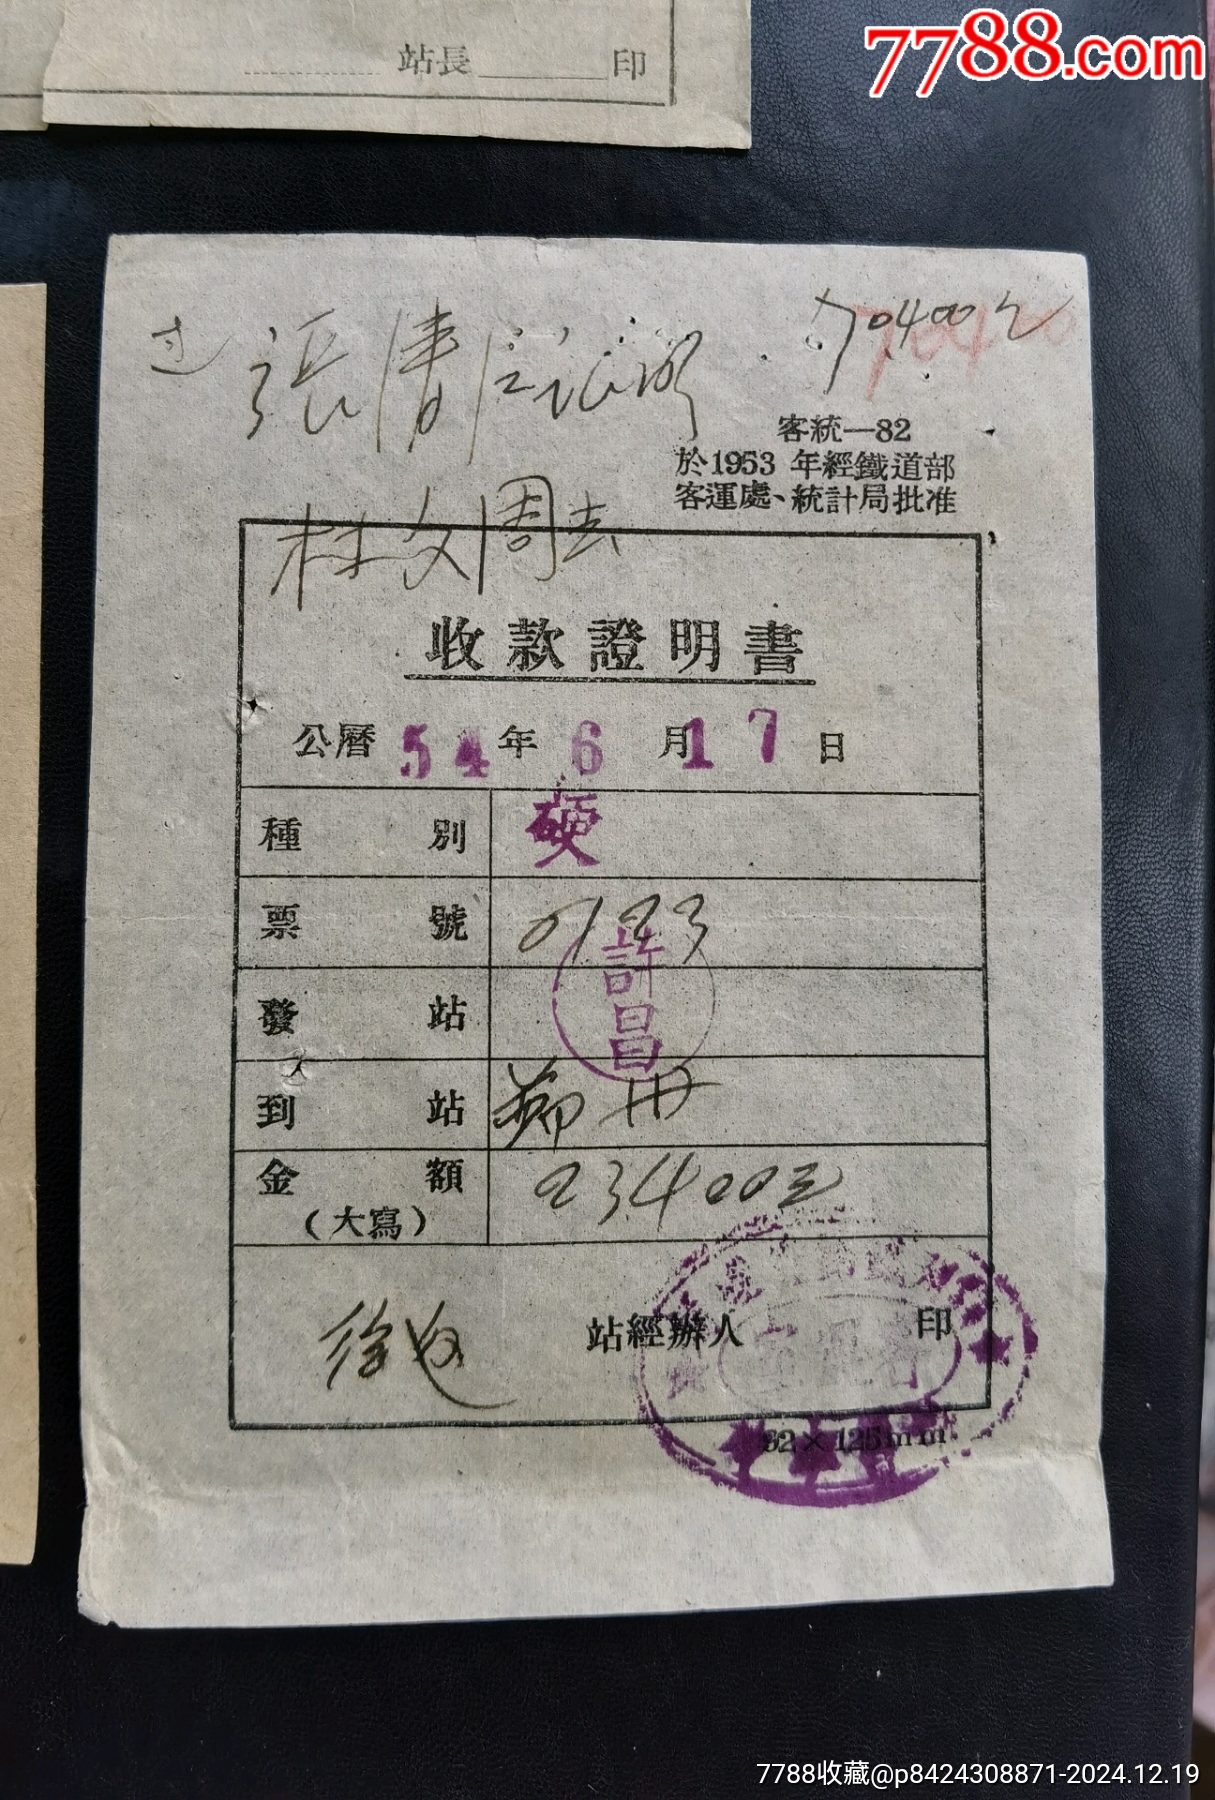 站長 印
7788.com
70400元
客統—82
於1953 年經鐵道部
客運處、統計局批准
林文周去
收款證明書
公曆 54 年 6 月 17 日
種別 硬
票號 0123
發站 許昌
到站 鄭州
金額 23400元
(大寫)
站經辦人 印
92×125mm
7788收藏@p8424308871-2024.12.19